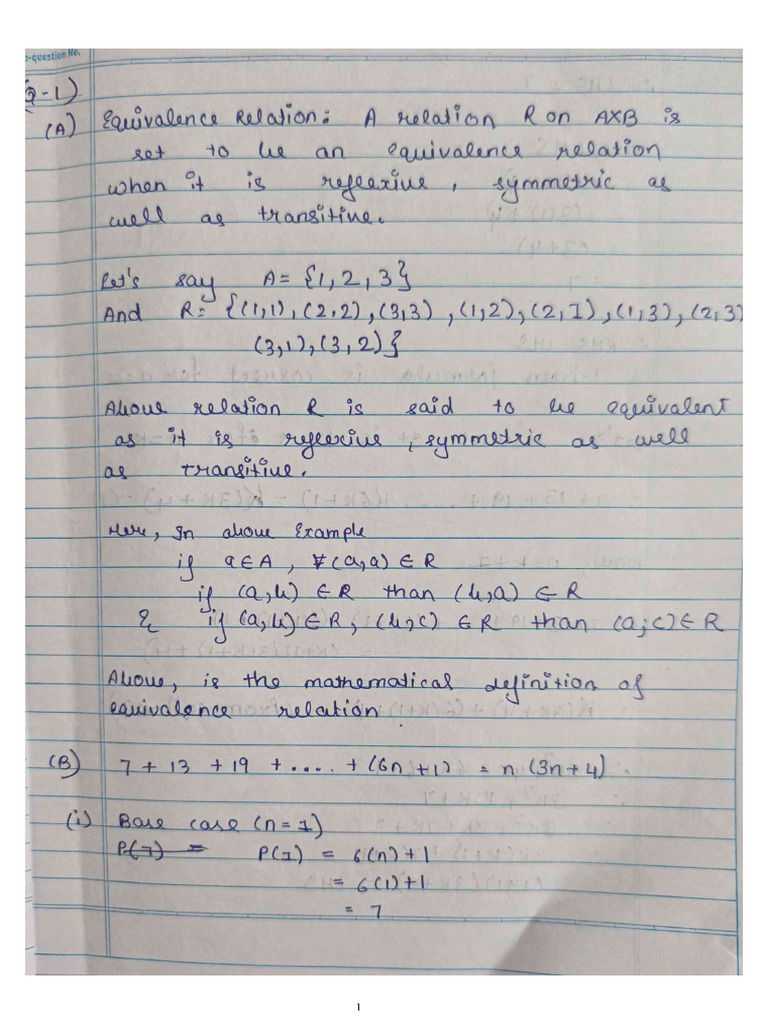 o-question No.
Q-1)
(A) Equivalence Relation: A relation R on AXB is
set to be an equivalence relation
when it is reflexive, symmetric as
well as transitive.
Let's say A = {1, 2, 3}
And R = {(1,1), (2,2), (3,3), (1,2), (2,1), (1,3), (2,3)
(3,1), (3,2)}
Above relation R is said to be equivalent
as it is reflexive, symmetric as well
as transitive.
Here, In above Example
if a ∈ A, ∀(a,a) ∈ R
if (a,b) ∈ R than (b,a) ∈ R
& if (a,b) ∈ R, (b,c) ∈ R than (a,c) ∈ R
Above, is the mathematical definition of
equivalence relation
(B) 7 + 13 + 19 + ..... + (6n + 1) = n (3n+4)
(i) Base case (n = 1)
P(1) = P(1) = 6(n) + 1
= 6(1)+1
= 7
1